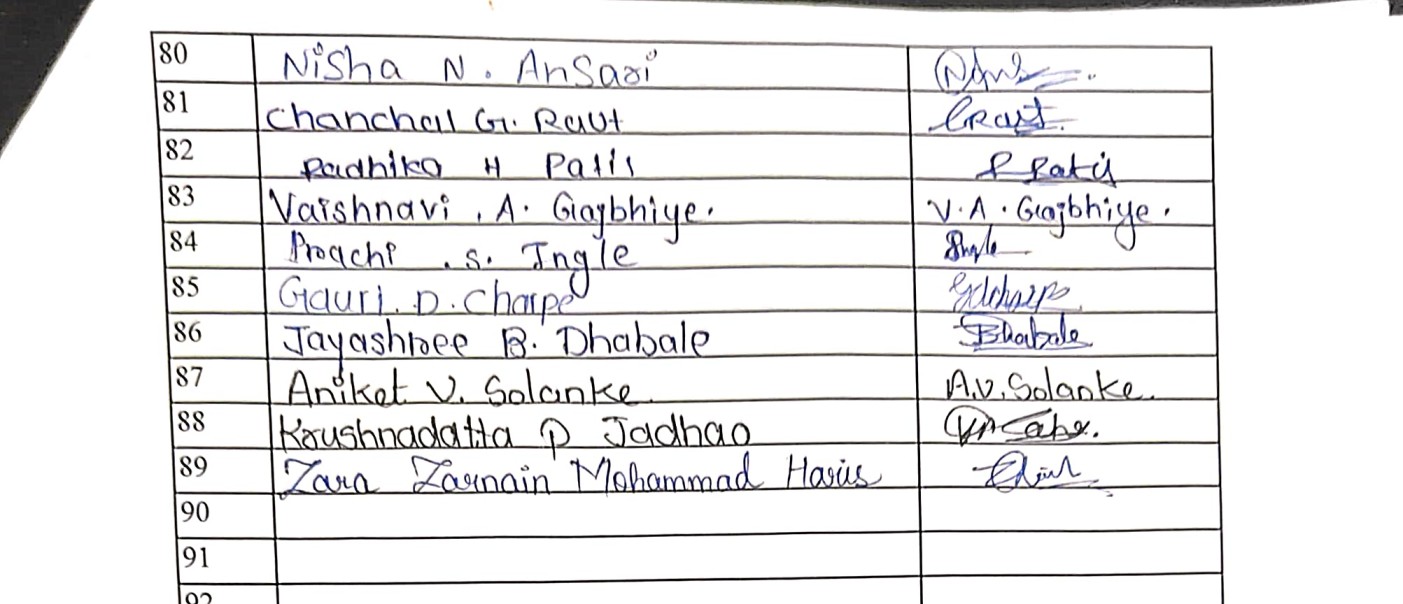 80 Nisha N. Ansari
81 Chanchal G. Raut
82 Radhika H Patil P Patil
83 Vaishnavi . A. Gajbhiye. V. A. Gajbhiye.
84 Prachi . S. Ingle Ingle
85 Gauri. D. Charpe
86 Jayashree B. Dhabale Dhabale
87 Aniket V. Solanke. A.V. Solanke.
88 Krushnadatta P Jadhao
89 Zara Zarnain Mohammad Haris
90
91
92